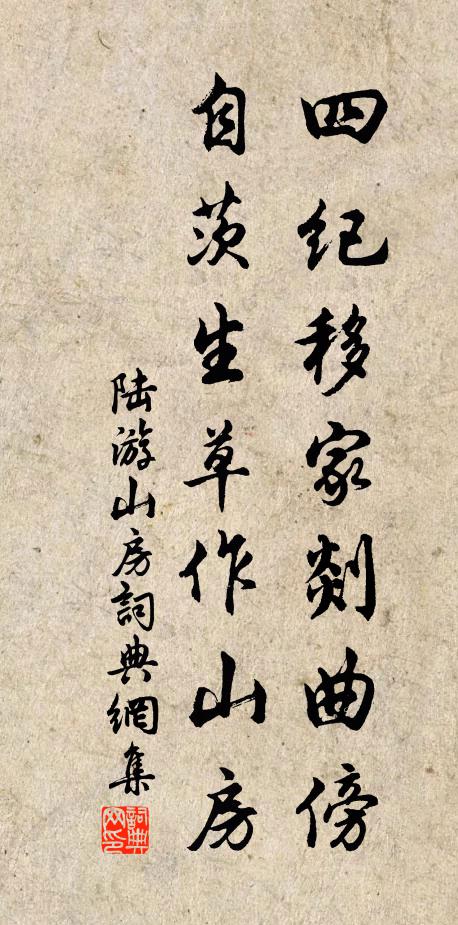 四纪移家剡曲傍
自茨生草作山房
陆游山房詞典網集
詞典網印